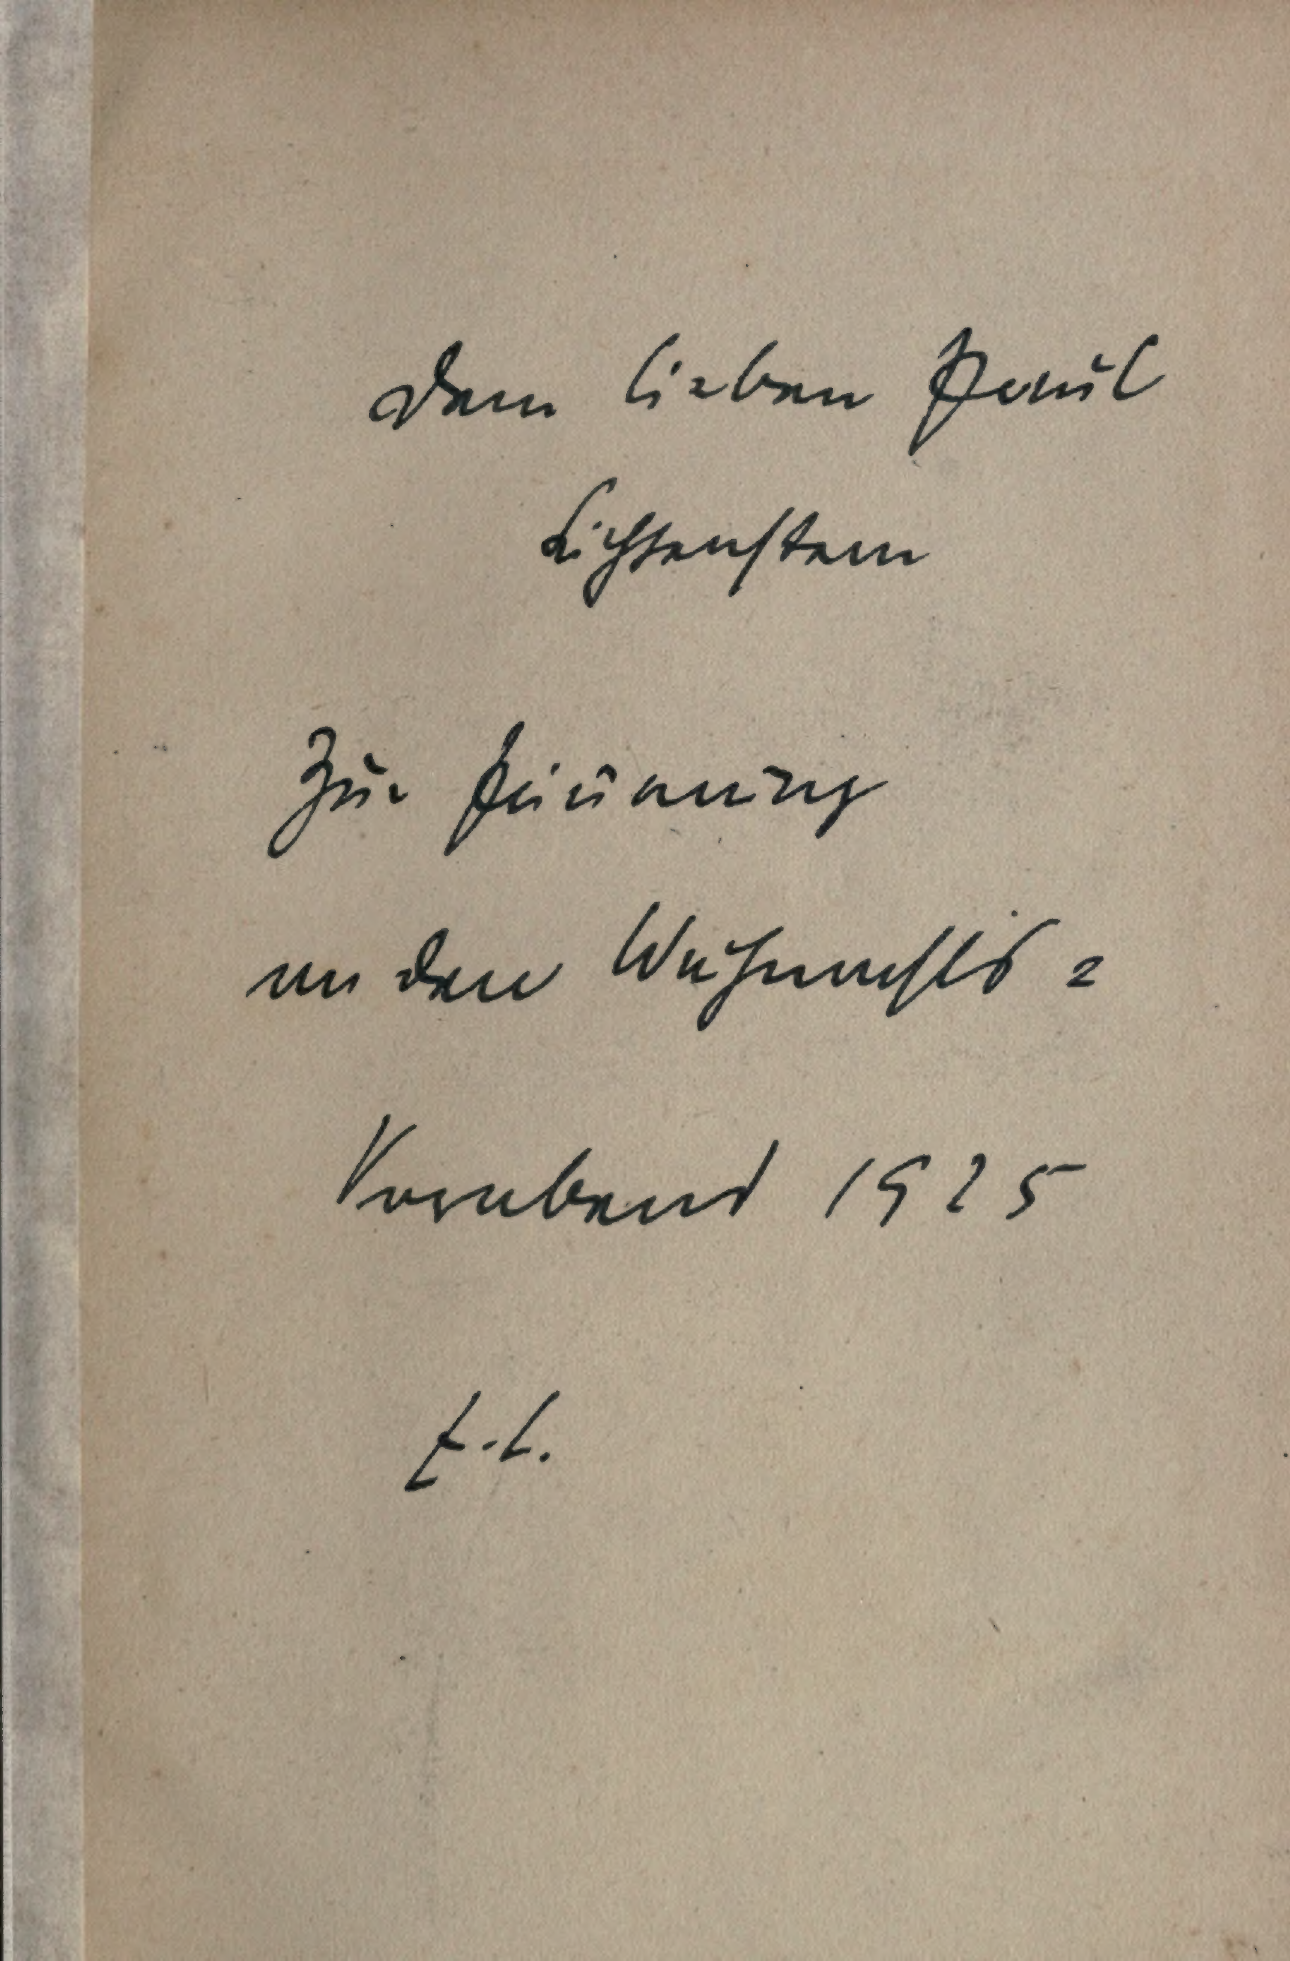 Dem lieben Paul
Lichtenstein
Zur Erinnerung
an den Weihnachts=
Vorabend 1925
E. L.